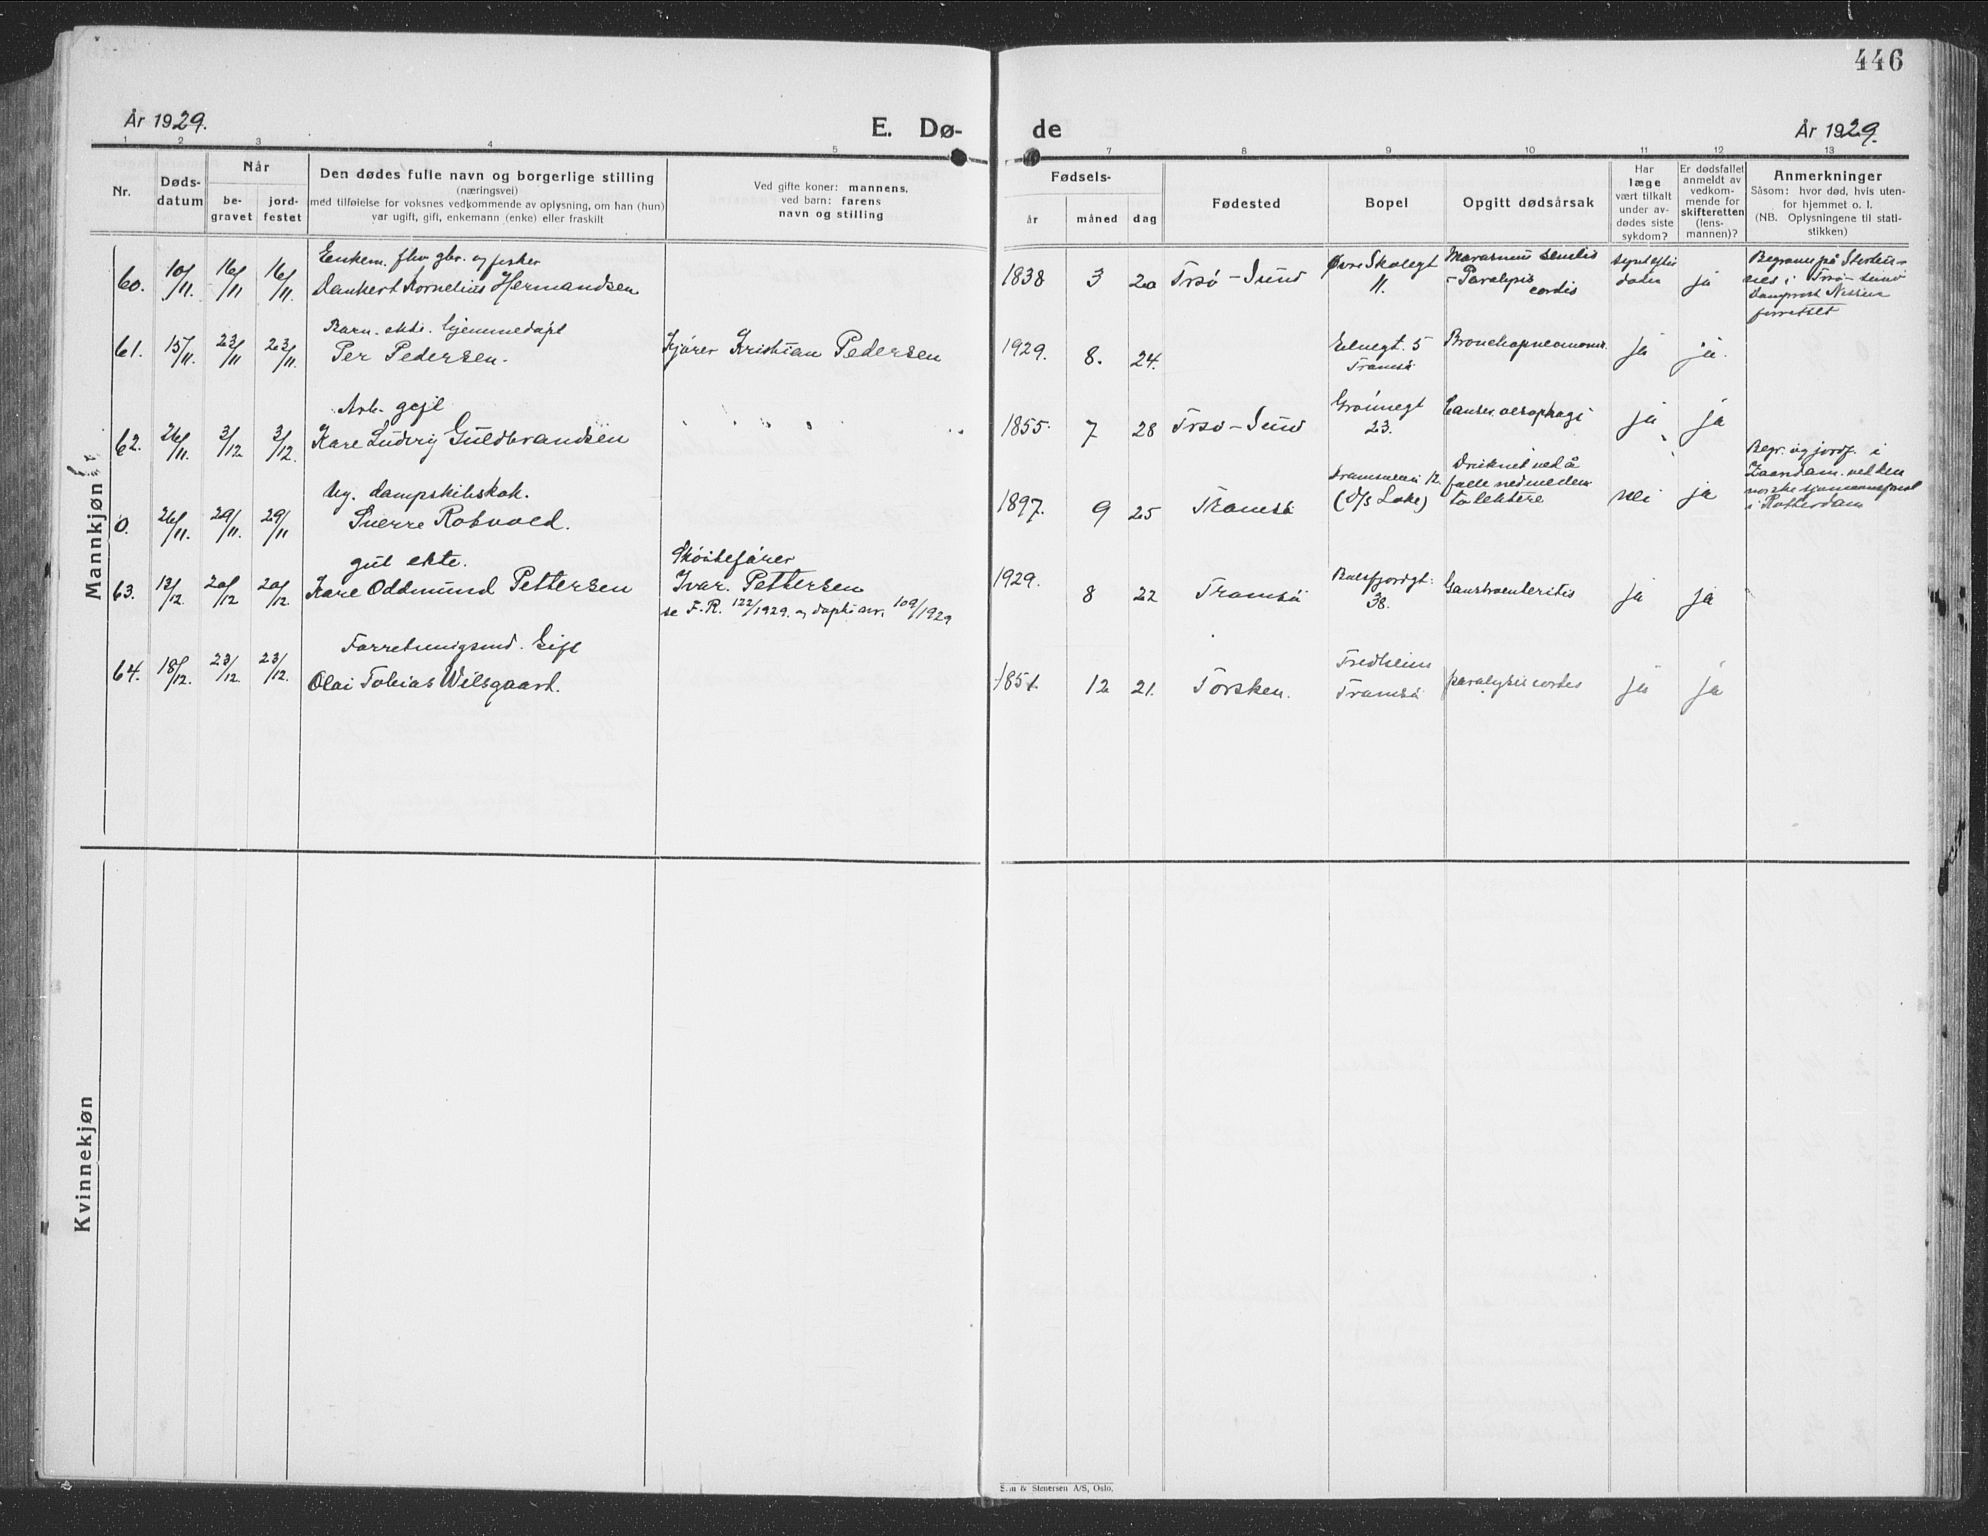 446
År 1929.
E. Dø-
de
År 1929.
1 2 3 4 5 7 8 9 10 11 12 13
Nr.
Døds-
datum
Når
be-
gravet
jord-
festet
Den dødes fulle navn og borgerlige stilling
(næringsvei)
med tilføielse for voksnes vedkommende av oplysning, om han (hun)
var ugift, gift, enkemann (enke) eller fraskilt
Ved gifte koner: mannens,
ved barn: farens
navn og stilling
Fødsels-
år
måned
dag
Fødested
Bopel
Opgitt dødsårsak
Har
læge
vært tilkalt
under av-
dødes siste
sykdom?
Er dødsfallet
anmeldt av
vedkom-
mende for
skifteretten
(lens-
mannen)?
Anmerkninger
Såsom: hvor død, hvis uten-
for hjemmet o. l.
(NB. Oplysningene til stati-
stikken)
Mannkjøn
60. 10/11. 16/11 16/11.
Enkem. fhv. gbr. og fisker
Dankert Kornelius Hermandsen
1838 3 20 Trsø-Sund
Øvre Skolegt
11.
Marasmus senilis
- Paralysis
cordis
ja
61. 15/11. 23/11 23/11.
Barn. ekte. hjemmedøpt
Per Pedersen.
Kjører Kristian Pedersen
1929. 8. 24.
5
Tromsø
ja ja.
62. 26/11. 3/12 3/12.
Arb. gift
Kare Ludvig Guldbrandsen
1855. 7 28 Trsø-Sund
Grønnegt
23.
Cancer oesophagi
ja ja
0. 26/11. 29/11. 29/11
Ug. dampskibskok.
Sverre Rotvold.
1897. 9 25 Tromsø
12.
(D/s Loke)
Druknet ved å
falle ned mellem
to lektere
nei ja
Begr. og jordf. i
Zaandam. ved den
norske sjømannsprest
i Rotterdam
63. 13/12. 20/12 20/12.
gut ekte.
Kare Oddmund Pettersen
Skøitefører
Ivar Pettersen
se F. R. 122/1929. og døpte nr. 109/1929
1929. 8 22 Tromsø
Balsfjordgt.
38.
Gastroenteritis
ja ja
64. 18/12. 23/12. 23/12.
Forretningsmd. Gift
Olai Tobias Wilsgaard.
1851. 12 21. Torsken.
Fredheim
Tromsø
paralysis cordis
ja ja
Kvinnekjøn
& Stenersen A/S, Oslo.